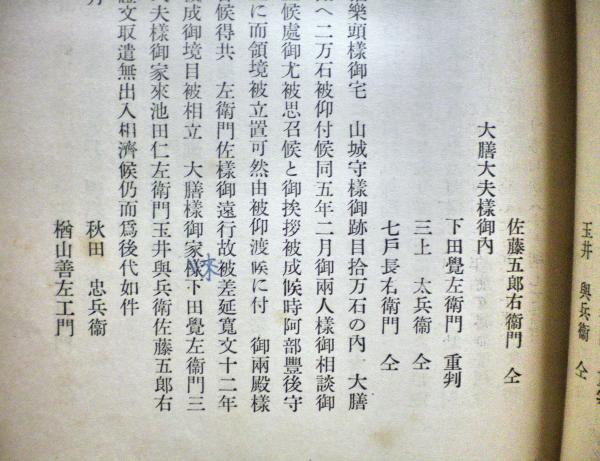 玉井 與兵衞 仝
佐藤五郎右衞門 仝
大膳大夫樣御內
下田覺左衞門 重判
三上 太兵衞 仝
七戶長右衞門 仝
樂頭樣御宅 山城守樣御跡目拾万石の內 大膳
へ二万石被仰付候同五年二月御兩人樣御相談御
候處御尤被思召候と御挨拶被成候時阿部豐後守
に而領境被立置可然由被仰渡候に付 御兩殿樣
候得共 左衞門佐樣御遠行故被差延寬文十二年
成御境目被相立 大膳樣御家來下田覺左衞門三
夫樣御家來池田仁左衞門玉井與兵衞佐藤五郎右
證文取遣無出入相濟候仍而爲後代如件
月
秋田 忠兵衞
楢山善左工門